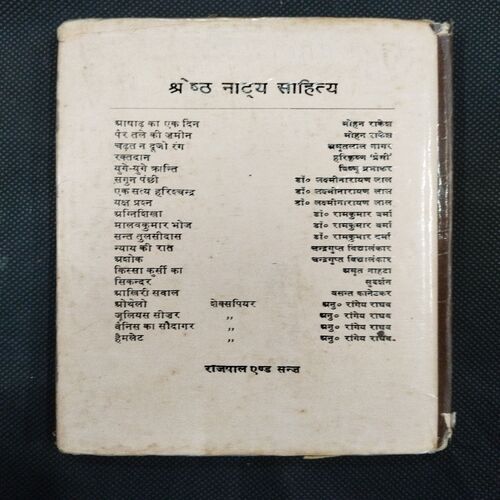 श्रेष्ठ नाट्य साहित्य
आषाढ़ का एक दिन मोहन राकेश
पैर तले की ज़मीन मोहन राकेश
चढ़त न दूजो रंग अमृतलाल नागर
रक्तदान हरिकृष्ण 'प्रेमी'
युगे-युगे क्रान्ति विष्णु प्रभाकर
सगुन पंछी डॉ० लक्ष्मीनारायण लाल
एक सत्य हरिश्चन्द्र डॉ० लक्ष्मीनारायण लाल
यक्ष प्रश्न डॉ० लक्ष्मीनारायण लाल
अग्निशिखा डॉ० रामकुमार वर्मा
मालवकुमार भोज डॉ० रामकुमार वर्मा
सन्त तुलसीदास डॉ० रामकुमार वर्मा
न्याय की रात चन्द्रगुप्त विद्यालंकार
अशोक चन्द्रगुप्त विद्यालंकार
किस्सा कुर्सी का अमृत नाहटा
सिकन्दर सुदर्शन
आखिरी सवाल वसन्त कानेटकर
ओथेलो शेक्सपियर अनु० रांगेय राघव
जूलियस सीज़र ,, अनु० रांगेय राघव
वेनिस का सौदागर ,, अनु० रांगेय राघव
हैमलेट ,, अनु० रांगेय राघव
राजपाल एण्ड सन्ज़